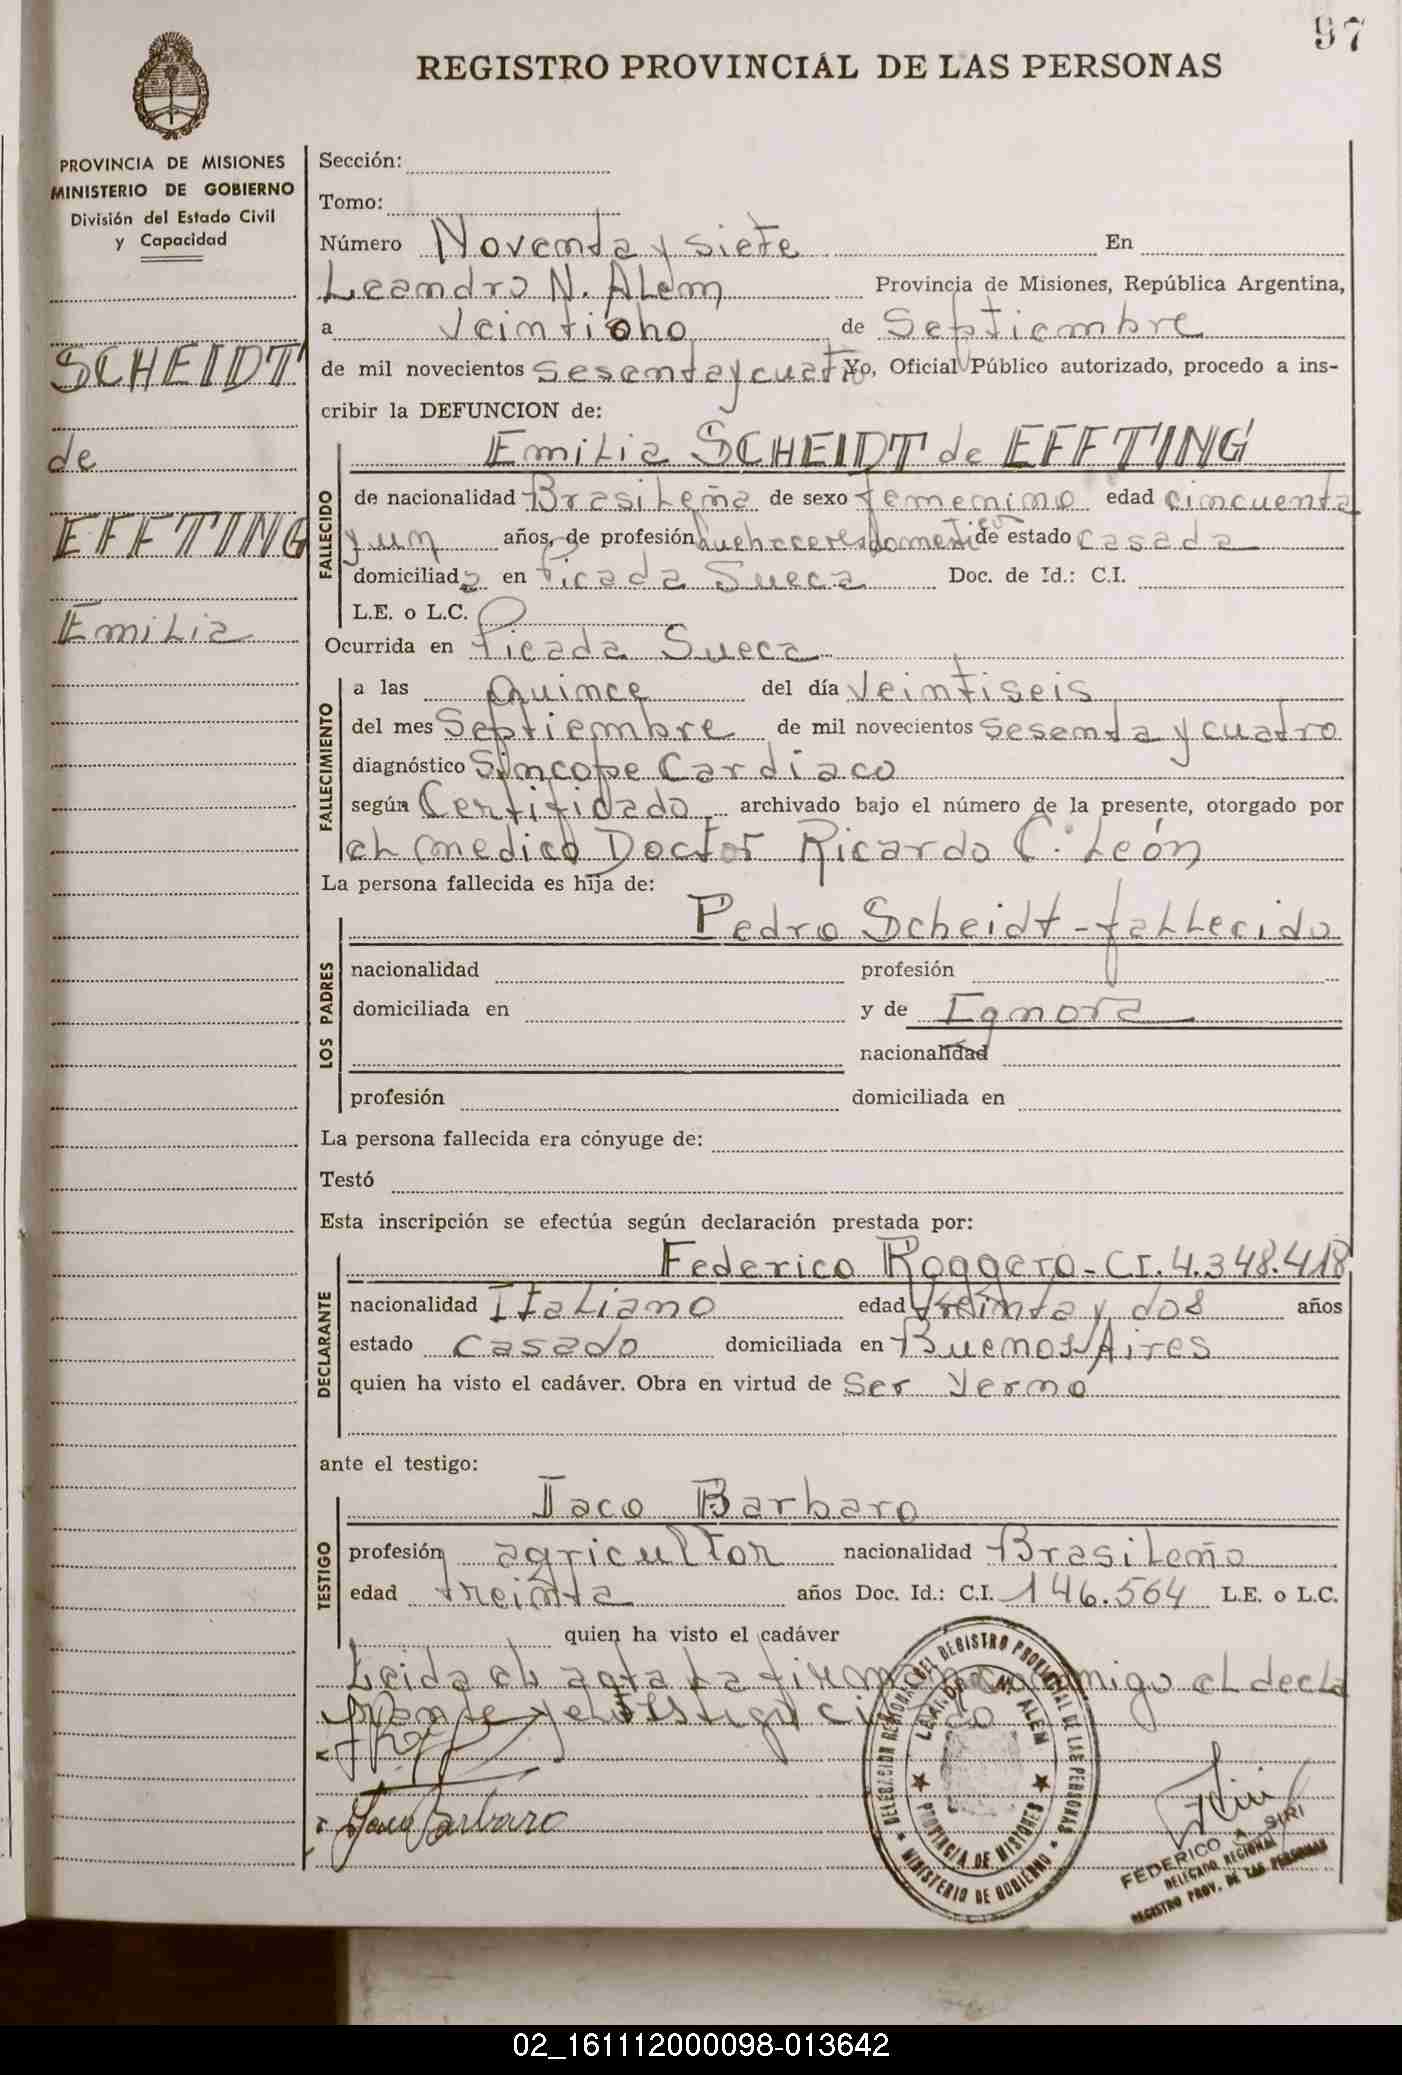 97
REGISTRO PROVINCIAL DE LAS PERSONAS
PROVINCIA DE MISIONES
MINISTERIO DE GOBIERNO
División del Estado Civil
y Capacidad
SCHEIDT
de
EFFTING
Emilia
Sección:
Tomo:
Número Noventa y siete En
Leandro N. Alem Provincia de Misiones, República Argentina,
a Veintioho de Septiembre
de mil novecientos Sesenta y cuatro Yo, Oficial Público autorizado, procedo a ins-
cribir la DEFUNCION de:
Emilia SCHEIDT de EFFTING
FALLECIDO
de nacionalidad Brasileña de sexo femenino edad cincuenta
y un años, de profesión de estado casada
domiciliada en Picada Sueca Doc. de Id.: C.I.
L.E. o L.C.
Ocurrida en Picada Sueca
FALLECIMIENTO
a las Quince del día Veintiseis
del mes Septiembre de mil novecientos Sesenta y cuatro
diagnóstico Sincope Cardiaco
según Certificado archivado bajo el número de la presente, otorgado por
el medico Doctor Ricardo C. León
La persona fallecida es hija de:
LOS PADRES
Pedro Scheidt - fallecido
nacionalidad profesión
domiciliada en y de Ignora
nacionalidad
profesión domiciliada en
La persona fallecida era cónyuge de:
Testó
Esta inscripción se efectúa según declaración prestada por:
DECLARANTE
Federico Roggero - CI. 4.348.418
nacionalidad Italiano edad treinta y dos años
estado casado domiciliada en Buenos Aires
quien ha visto el cadáver. Obra en virtud de Ser Yerno
ante el testigo:
TESTIGO
Iaco Barbaro
profesión agricultor nacionalidad Brasileño
edad treinta años Doc. Id.: C.I. 146.564 L.E. o L.C.
quien ha visto el cadáver
Leida el acta la firman conmigo el decla
rante y el testigo citado
Iaco Barbaro
DELEGACION REGIONAL DEL REGISTRO PROVINCIAL DE LAS PERSONAS
LEANDRO N. ALEM
PROVINCIA DE MISIONES
MINISTERIO DE GOBIERNO
FEDERICO A. SIRI
DELEGADO REGIONAL
REGISTRO PROV. DE LAS PERSONAS
02_161112000098-013642